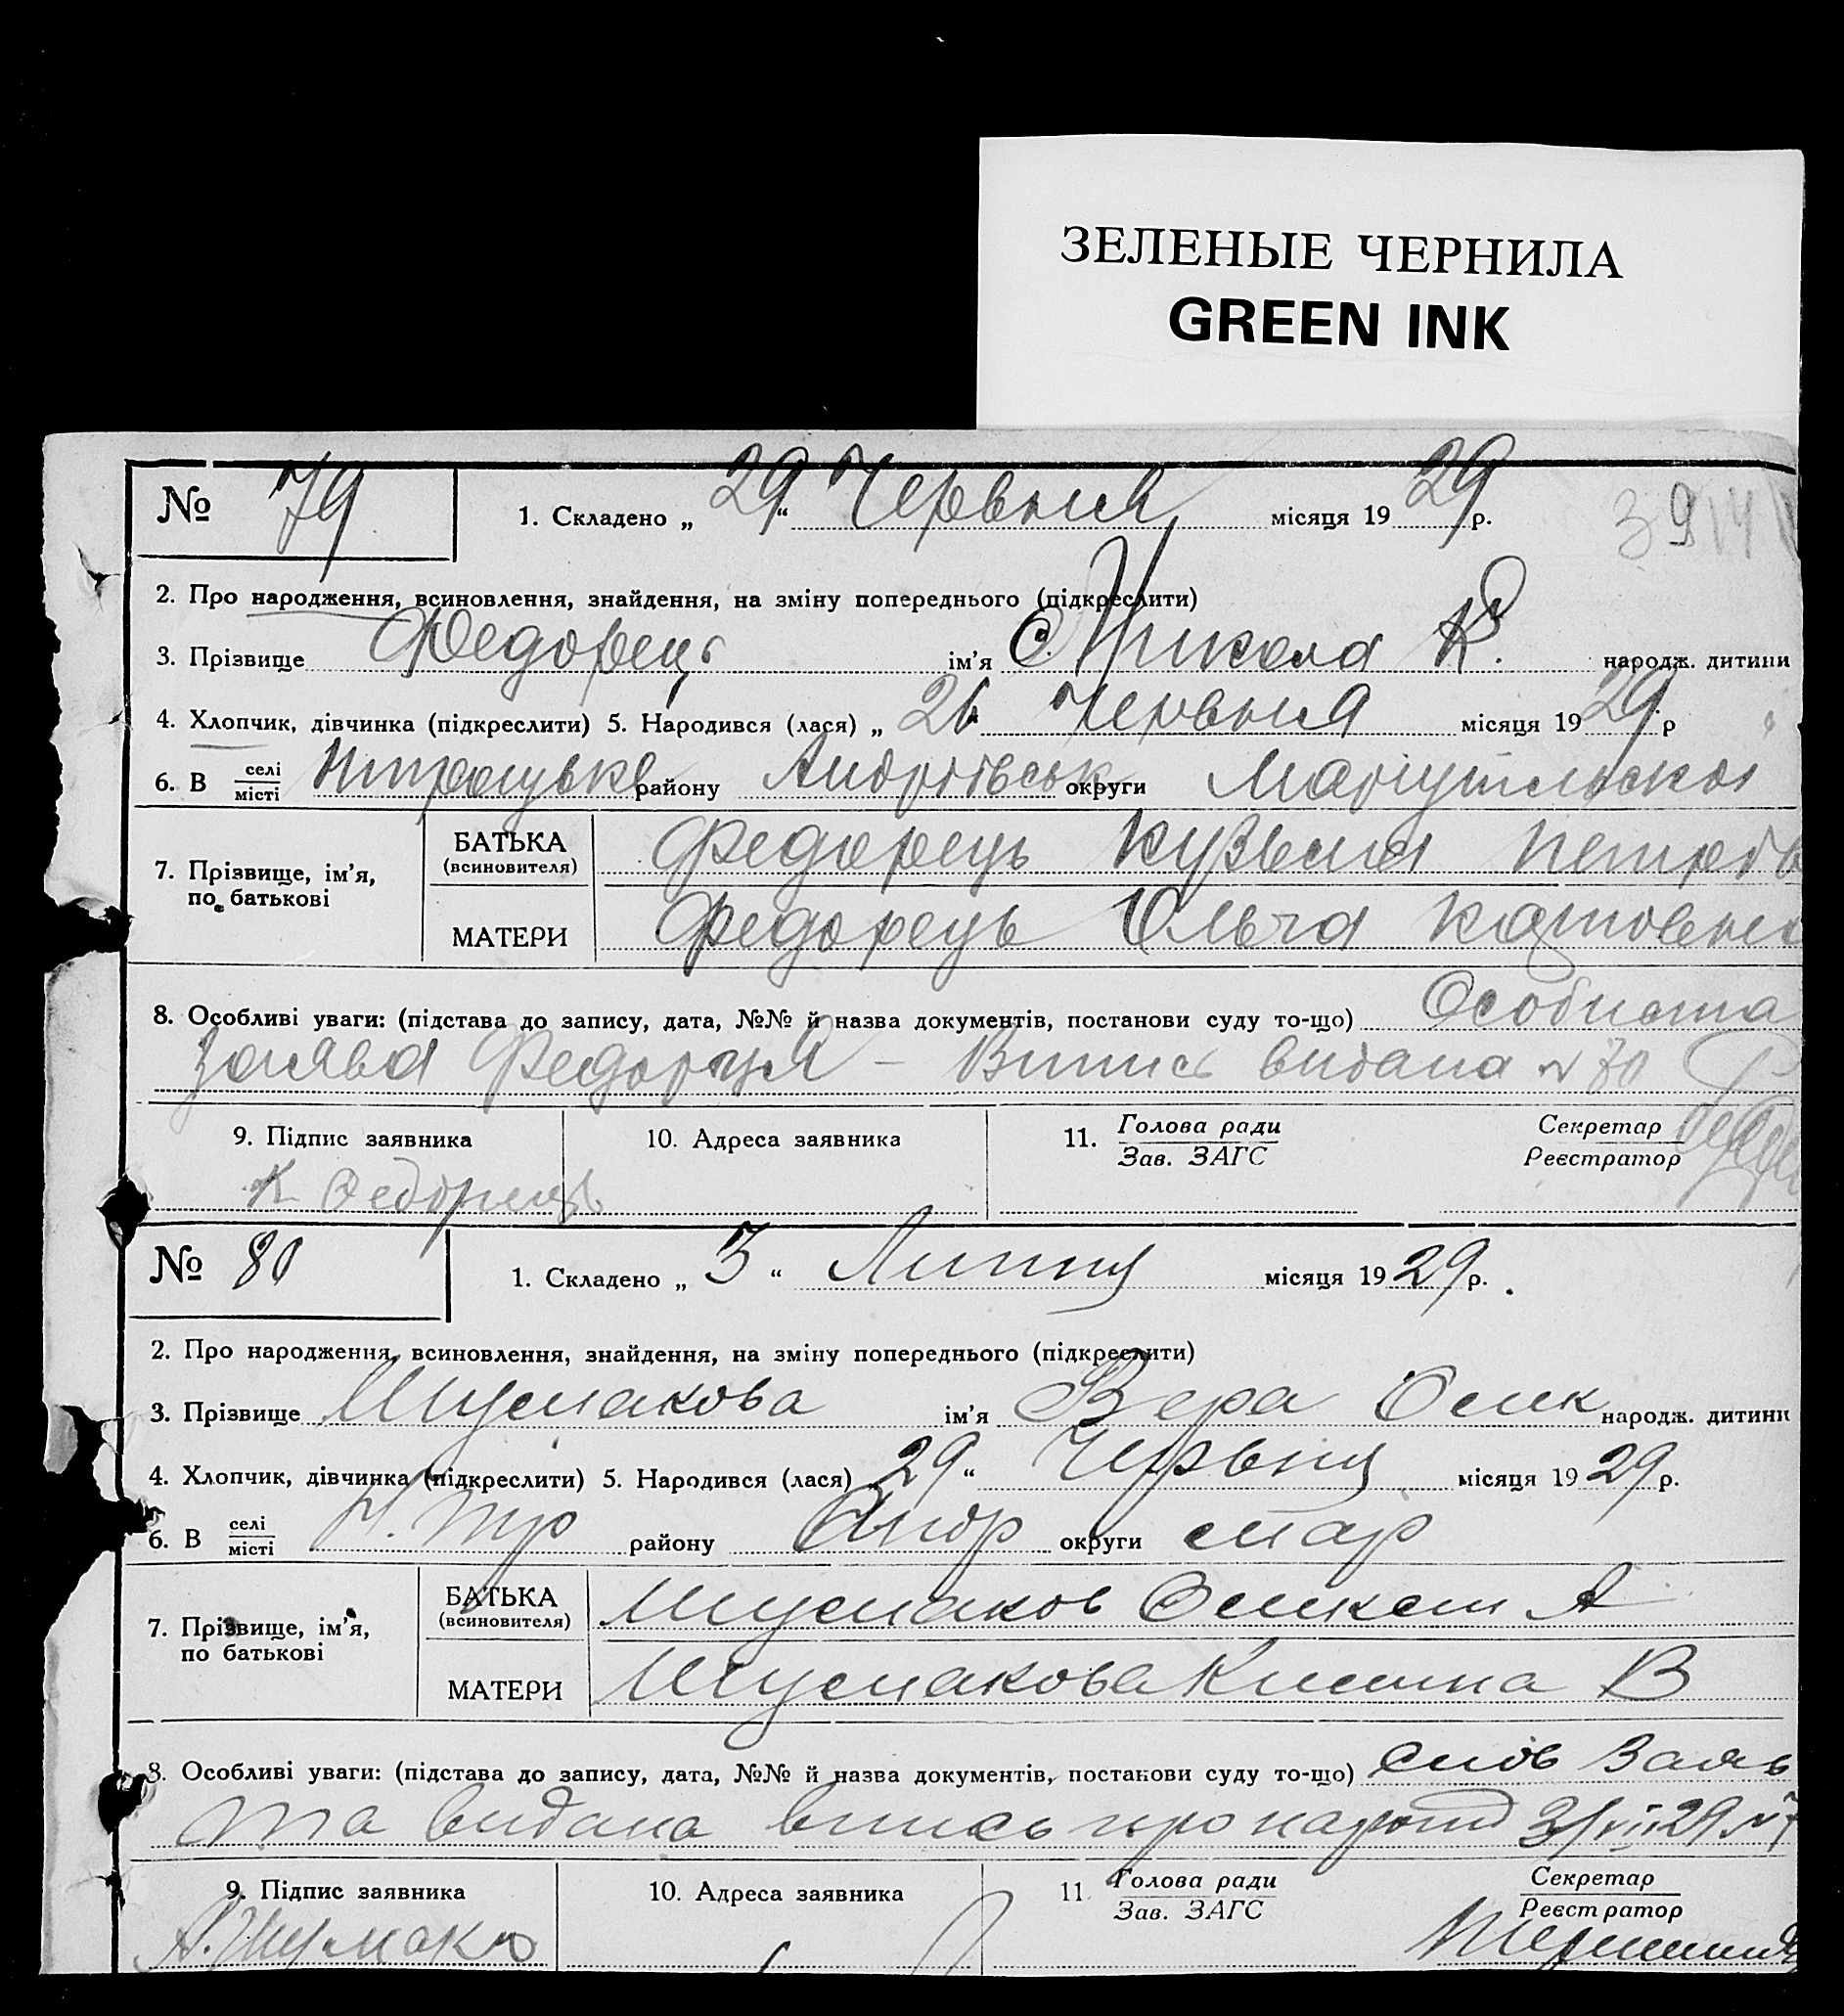 ЗЕЛЕНЫЕ ЧЕРНИЛА
GREEN INK
№ 79 1. Складено „ 29 “ Червьня місяця 19 29 р.
2. Про народження, всиновлення, знайдення, на зміну попереднього (підкреслити)
3. Прізвище Федорець ім'я Микола К. народж. дитини
4. Хлопчик, дівчинка (підкреслити) 5. Народився (лася) „ 26 “ Червьня місяця 19 29 р
6. В селі місті району Андріївськ округи Маріупільскої
7. Прізвище, ім'я, по батькові
БАТЬКА (всиновителя) Федорець Кузьма Петров
МАТЕРИ Федорець Ольга
8. Особливі уваги: (підстава до запису, дата, №№ й назва документів, постанови суду то-що) Особиста
заява Федорця – Випись видана N 70
9. Підпис заявника 10. Адреса заявника 11. Голова ради Зав. ЗАГС Секретар Реєстратор
К Федорець
№ 80 1. Складено „ 3 “ Липня місяця 19 29 р.
2. Про народження, всиновлення, знайдення, на зміну попереднього (підкреслити)
3. Прізвище Шумакова ім'я Вера народж. дитини
4. Хлопчик, дівчинка (підкреслити) 5. Народився (лася) 29 “ Червьня місяця 19 29 р.
6. В селі місті Н. Тр району Андр округи Мар
7. Прізвище, ім'я, по батькові
БАТЬКА (всиновителя) Шумаков А
МАТЕРИ Шумакова В
8. Особливі уваги: (підстава до запису, дата, №№ й назва документів, постанови суду то-що) Заяв
та видана впись про народ 3/VII 29 N 7
9. Підпис заявника 10. Адреса заявника 11. Голова ради Зав. ЗАГС Секретар Реєстратор
А. Шумаков